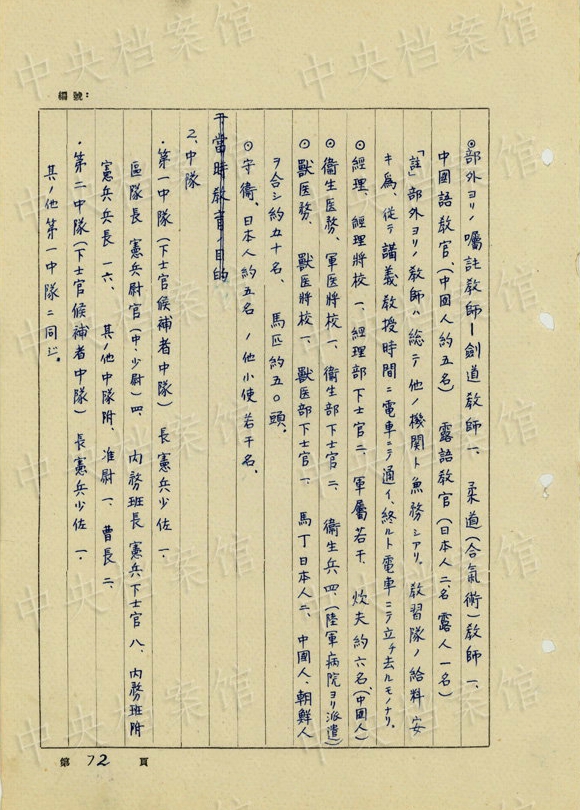 編號：
◎部外ヨリノ囑託教師ー劍道教師一、柔道(合氣術)教師一、
中國語教官、(中國人約五名) 露語教官(日本人二名 露人一名)
「註」部外ヨリノ教師ハ総テ他ノ機関ト兼務シアリ。教習隊ノ給料安
キ為、従テ講義教授時間ニ電車ニテ通イ、終ルト電車ニテ立チ去ルモノナリ。
◎經理、經理将校一、經理部下士官二、軍属若干、炊夫約六名、(中國人)
◎衛生医務、軍医将校一、衛生部下士官二、衛生兵四、(陸軍病院ヨリ派遣)
◎獸医務、獸医将校一、獸医部下士官一、馬丁日本人二、中國人、朝鮮人
ヲ合シ約五十名、馬匹約五〇頭。
◎守衛、日本人約五名ノ他小使若干名。
当時教育ノ目的
2、中隊
・第一中隊(下士官候補者中隊)長憲兵少佐一、
區隊長 憲兵尉官(中、少尉)四、内務班長 憲兵下士官八、内務班附
憲兵兵長一六、其ノ他中隊附、准尉一、曹長二、
・第二中隊(下士官候補者中隊)長憲兵少佐一、
其ノ他第一中隊ニ同ジ。
第 72 頁
中央档案馆